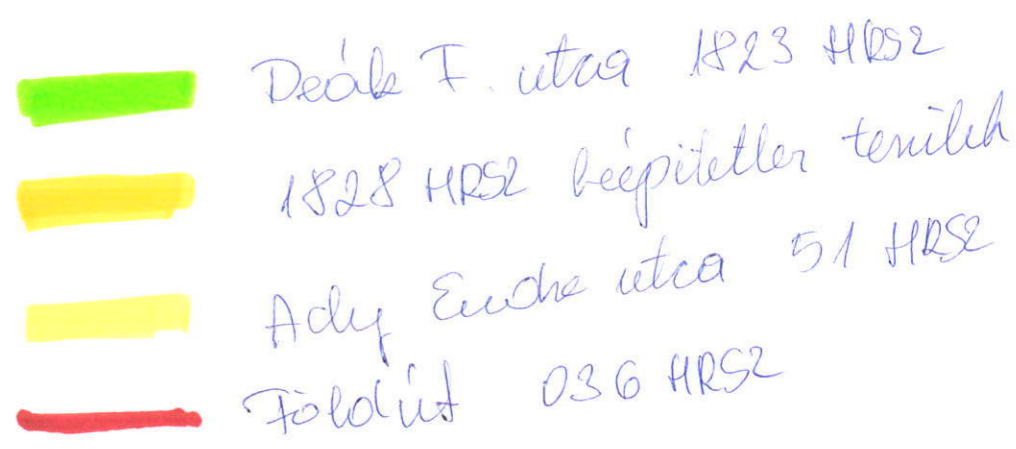 Deák F. utca 1823 HRSZ
1828 HRSZ beépitetlen terület
Ady Endre utca 51 HRSZ
Földút 036 HRSZ